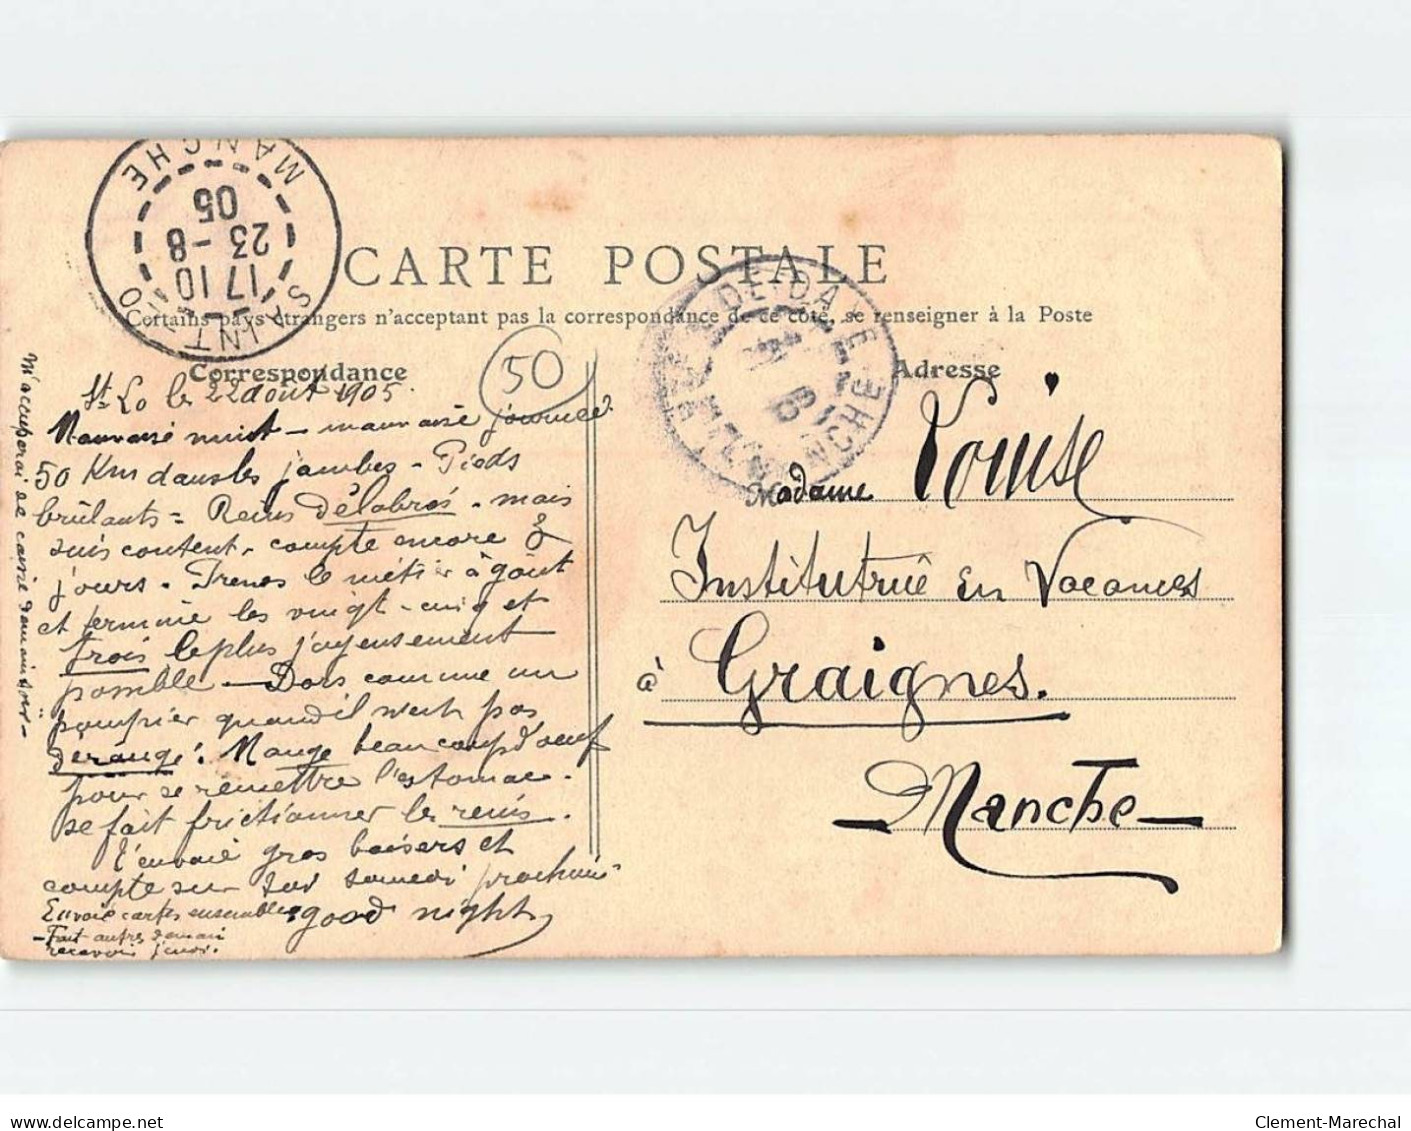 MANCHE
SAINT LO
17 10
23 - 8
05
CARTE POSTALE
Certains pays étrangers n'acceptent pas la correspondance de ce côté, se renseigner à la Poste
Correspondance
50
Adresse
DE DAYE
MANCHE
St Lo le 22 août 1905.
Mauvaise nuit - mauvaise journée.
50 Km dans les jambes - Pieds
brûlants = Reins délabrés - mais
suis content - compte encore 8
jours. Prenez le métier à goût
et termine les vingt-cinq et
trois le plus joyeusement
possible - Dors comme un
pompier quand il n'est pas
dérangé. Mange beaucoup d'oeufs
pour se remettre l'estomac.
se fait frictionner les reins.
T'envoie gros baisers et
compte sur toi samedi prochain
Envoie cartes ensemble. good night
- Fait autres demain
recevoir jeudi.
Madame Louise
Institutrice en Vacances
à Graignes.
Manche
Clement-Marechal
www.delcampe.net